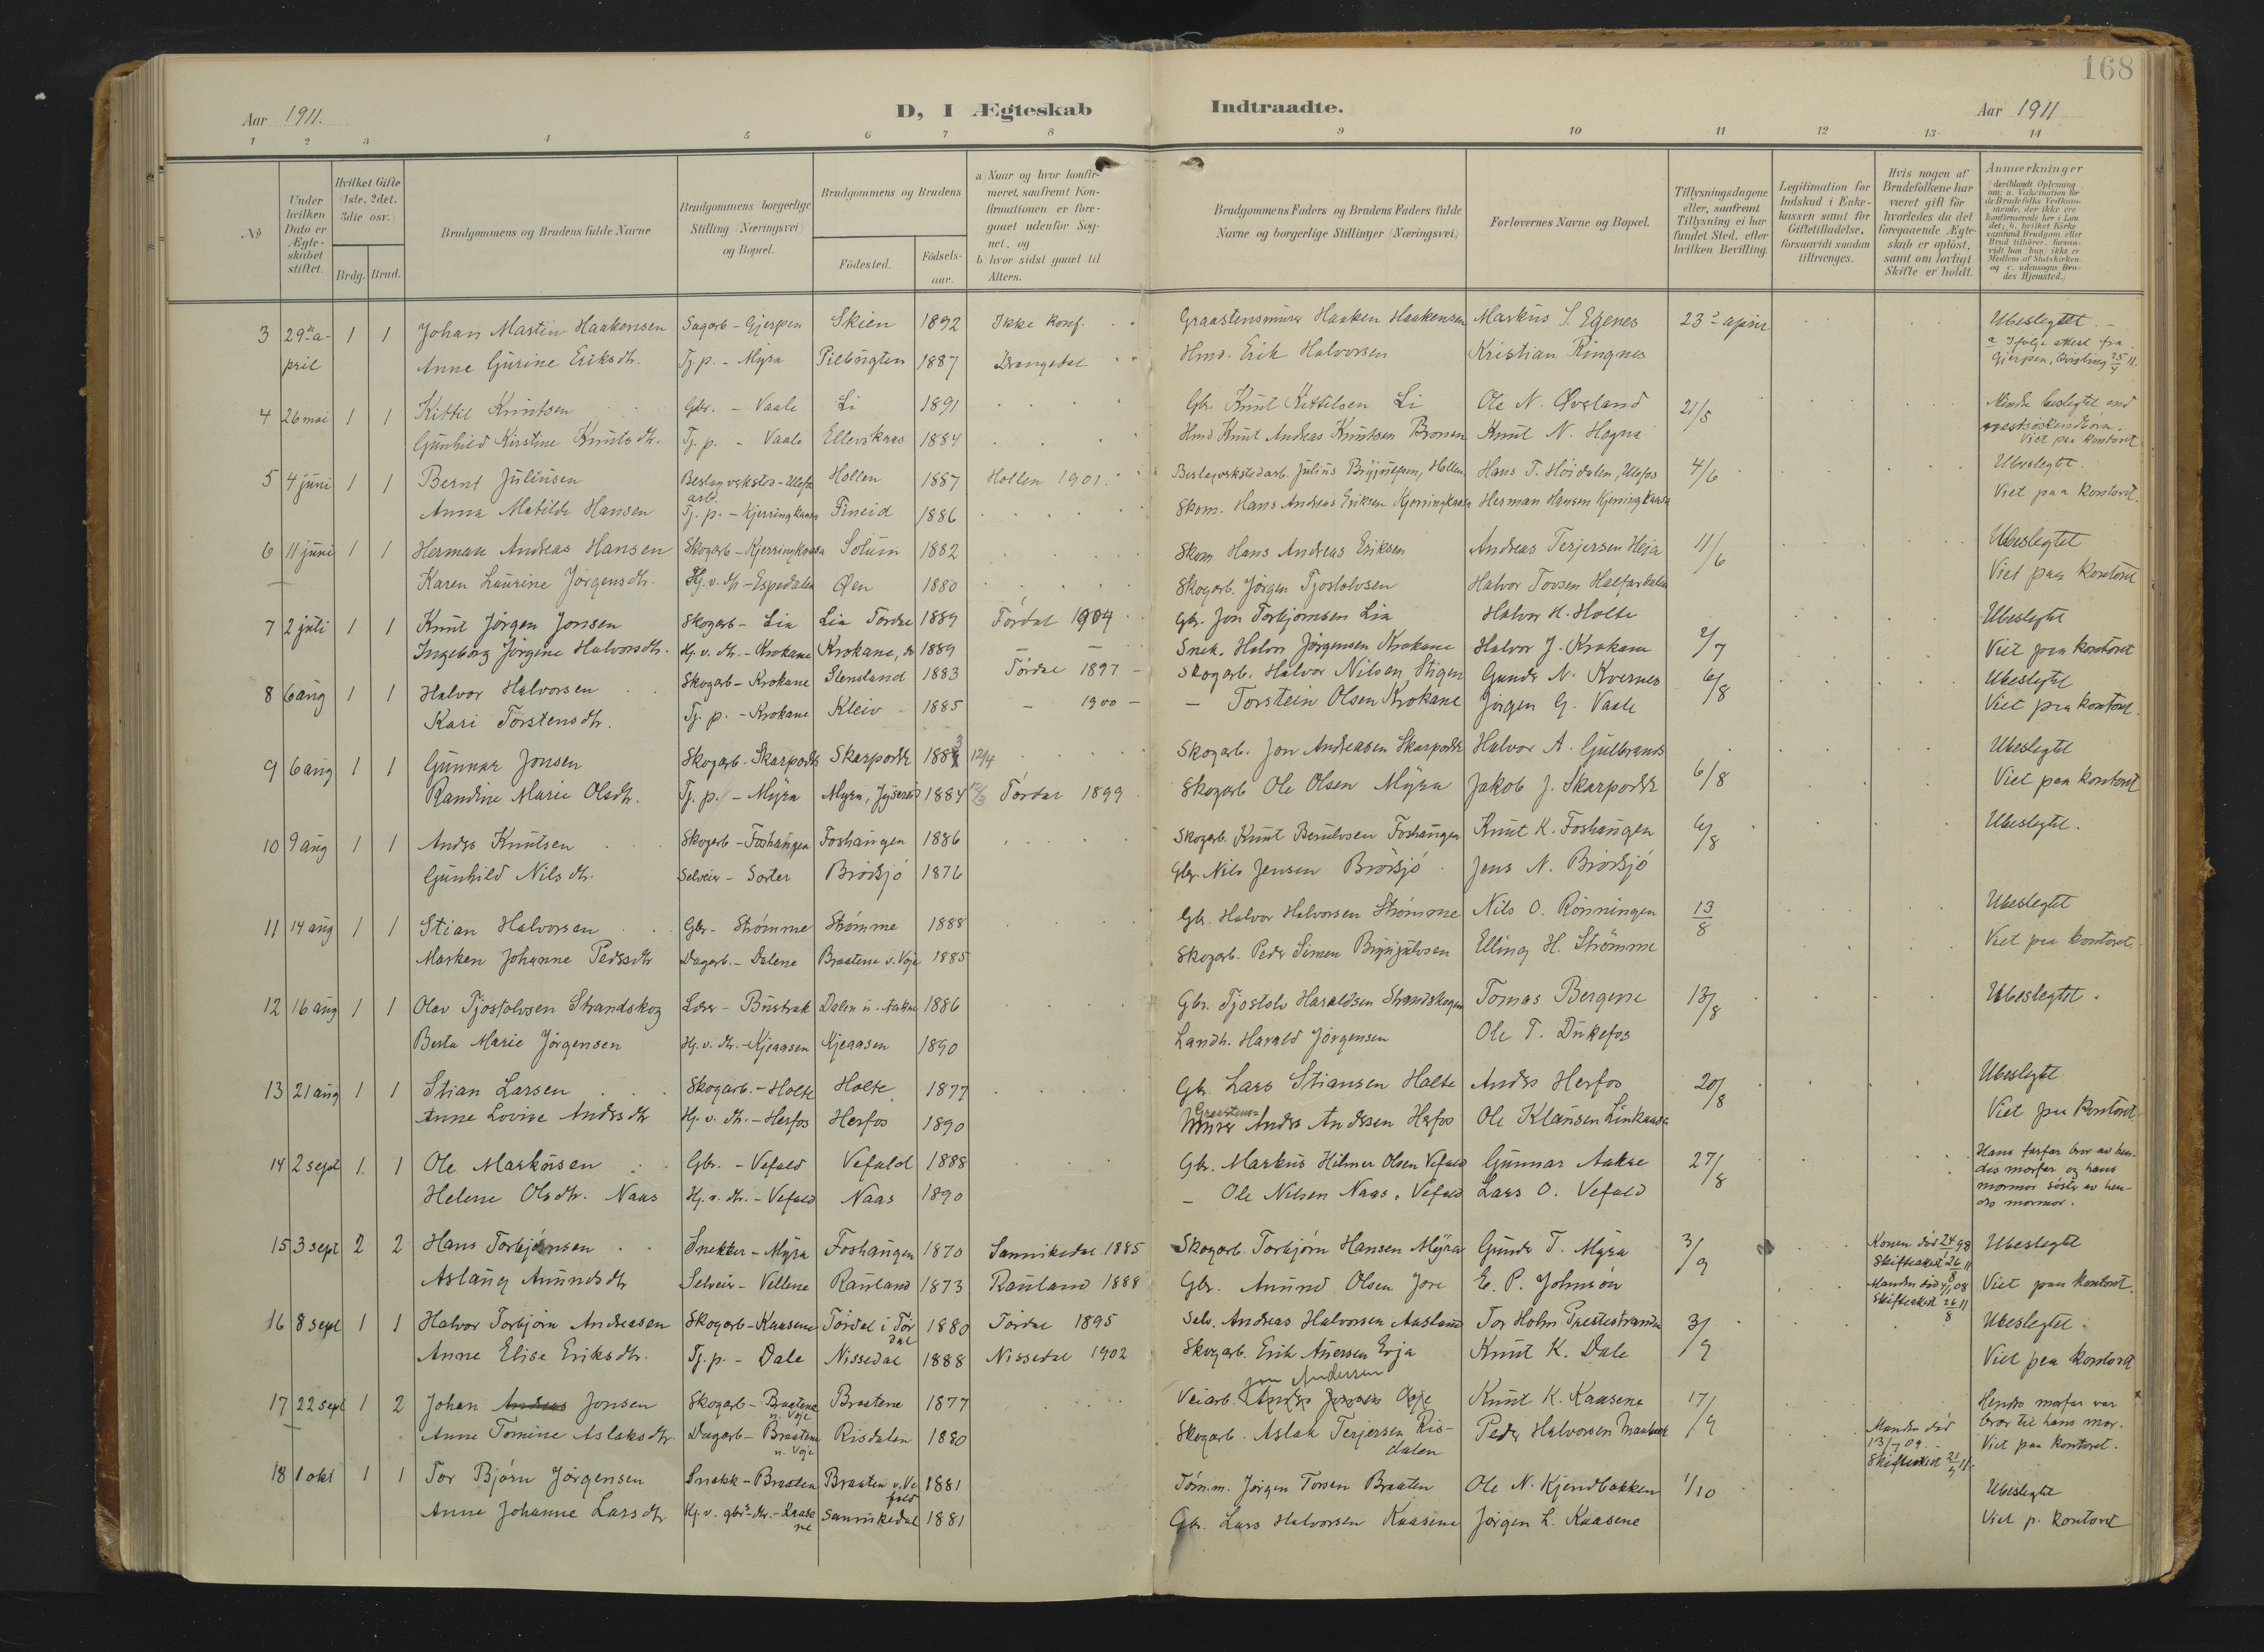 168
Aar 1911.
D, I Ægteskab Indtraadte.
Aar 1911
1 2 3 4 5 6 7 8 9 10 11 12 13 14
No
Under hvilken Dato er Ægteskabet stiftet.
Hvilket Gifte (1ste, 2det, 3die osv.)
Brdg. Brud.
Brudgommens og Brudens fulde Navne
Brudgommens borgerlige Stilling (Næringsvei) og Bopæl.
Brudgommens og Brudens
Fødested. Fødselsaar.
a) Naar og hvor konfirmeret, saafremt Konfirmationen er foregaaet udenfor Sognet, og
b) hvor sidst gaaet til Alters.
Brudgommens Faders og Brudens Faders fulde Navne og borgerlige Stillinger (Næringsvei)
Forlovernes Navne og Bopæl.
Tillysningsdagene eller, saafremt Tillysning ei har fundet Sted, efter hvilken Bevilling.
Legitimation for Indskud i Enkekassen samt for Giftetilladelse, forsaavidt saadan tiltrænges.
Hvis nogen af Brudefolkene har været gift før hvorledes da det foregaaende Ægteskab er opløst, samt om lovligt Skifte er holdt.
Anmærkninger
(deriblandt Oplysning om: a. Vakcination for de Brudefolks Vedkommende, der ikke ere konfirmerede her i Landet; b. hvilket Kirkesamfund Brudgom eller Brud tilhører, forsaavidt han, hun, ikke er Medlem af Statskirken, og c. udensogns Brudes Hjemsted.)
3 29de a- 1 1 Johan Martin Haakensen Sagarb - Gjerpen Skien 1892 Ikke konf. Graastensmurer Haaken Haakensen Markus S. Egenes 23de april Ubeslegtet.
pril Anne Gurine Eriksdtr. Tj. p. - Myra Pilbugten 1887 Drangedal Hmd. Erik Halvorsen Kristian Ringnes a Ifølge attest fra Gjerpen,
4 26 mai 1 1 Kittil Knutsen Gbr. - Vaale Li 1891 Gbr. Knut Kittilsen Li Ole N. Øveland 21/5 Mindre beslegtet end
Gunhild Kirstine Knutsdtr. Tj. p. - Vaale Ellevskaas 1884 Hmd Knut Andreas Knutsen Knut N. Hagna Viet paa kontoret
5 4 juni 1 1 Bernt Juliusen Beslagverksted-arb. - Ulefos Hollen 1887 Hollen 1901. Beslagverkstedarb. Julius Hollen Hans T. Høidalen, Ulefos 4/6 Ubeslegtet.
Anna Matilde Hansen Tj. p. - Kjerringkaasa Fineid 1886 Skom. Hans Andreas Eriksen Kjerringkaasa Herman Hansen Kjerringkaasa Viet paa kontoret.
6 11 juni 1 1 Herman Andreas Hansen Skogarb - Kjerringkaasa Solum 1882 Skom. Hans Andreas Eriksen Andreas Terjersen Heja 11/6 Ubeslegtet
Karen Laurine Jørgensdtr. Hj. v. dtr - Espedalen Øen 1880 Skogarb. Jørgen Tjostolvsen Halvor Tovsen Halfardalen Viet paa kontoret
7 2 juli 1 1 Knut Jørgen Jonsen Skogarb - Lia Lia Tørdal 1889 Tørdal 1904 Gbr. Jon Torbjørnsen Lia Halvor H. Holte 2/7 Ubeslegtet
Ingeborg Jørgine Halvorsdtr. Hj. v. dtr. - Krokane Krokane, do 1889 Snek. Halvor Jørgensen Krokane Halvor J. Krokane Viet paa kontoret
8 6 aug 1 1 Halvor Halvorsen Skogarb - Krokane Stensland 1883 Tørdal 1897 Skogarb. Halvor Nilsen Stigen Gunder N. Kvernes 6/8 Ubeslegtet
Kari Torstensdtr. Tj. p. - Krokane Kleiv 1885 - 1900 - Torstein Olsen Krokane Jørgen G. Vaale Viet paa kontoret.
9 6 aug 1 1 Gunnar Jonsen Skogarb. Skarpodde Skarpodde 1883 12/4 Skogarb. Jon Andreasen Skarpodde Halvor A. Gulbrands Ubeslegtet
Randine Marie Olsdtr. Tj. p. - Myra Myra, 1884 Tørdal 1899 Skogarb Ole Olsen Myra Jakob J. Skarpodde 6/8 Viet paa kontoret
10 9 aug 1 1 Anders Knutsen Skogarb - Foshaugen Foshaugen 1886 Skogarb. Knut Foshaugen Knut K. Foshaugen 6/8 Ubeslegtet.
Gunhild Nilsdtr. Selveier - Sorter Brødsjø 1876 Gbr. Nils Jensen Brødsjø Jens N. Brødsjø
11 14 aug 1 1 Stian Halvorsen Gbr - Strømme Strømme 1888 Gbr. Halvor Halvorsen Strømme Nils O. Rønningen 13/8 Ubeslegtet
Marken Johanne Pedersdtr Dagarb. - Dalene Braatene v. Voje 1885 Skogarb. Peder Simen Brynjulvsen Elling H. Strømme Viet paa kontoret.
12 16 aug 1 1 Olav Tjostolvsen Strandskog Lærer - Bustrak Dalen u. Aakre 1886 Gbr. Tjostolv Haraldsen Strandskogen Tomas Bergene 13/8 Ubeslegtet.
Berta Marie Jørgensen Hj. v. dtr. - Kjeaasen Kjeaasen 1890 Landh. Harald Jørgensen Ole T. Dukefos
13 21 aug 1 1 Stian Larsen Skogarb. - Holte Holte 1877 Gbr Lars Stiansen Holte Anders Herfos 20/8 Ubeslegtet
Anne Lovise Andersdtr Hj. v. dtr. - Herfos Herfos 1890 Graastens-murer Anders Andersen Herfos Ole Klausen Linkaasa Viet paa kontoret.
14 2 sept 1 1 Ole Markusen Gbr. - Vefald Vefald 1888 Gbr. Markus Hilmer Olsen Vefald Gunnar Aakre 27/8 Hans farfar bror av hen-
des morfar og hans
Helene Olsdtr. Naas Hj. v. dtr. - Vefald Naas 1890 - Ole Nilsen Naas, Vefald Lars O. Vefald mormor søster av hen-
des mormor.
15 3 sept 2 2 Hans Torbjørnsen Snekker - Myra Foshaugen 1870 Sannikedal 1885 Skogarb. Torbjørn Hansen Myra Gunder T. Myra 3/9 Konen død 24/1 98 Skifteattest 26/8 11 Ubeslegtet
Aslaug Aanundsdtr Selveier - Vellene Rauland 1873 Rauland 1888 Gbr. Aanund Olsen Jore E. P. Johnsøn Manden død 4/1 08 Skifteattest 26/8 11 Viet paa kontoret.
16 8 sept 1 1 Halvor Torbjørn Andreasen Skogarb - Kaasene Tørdal i Tør-dal 1880 Tørdal 1895 Selv. Andreas Halvorsen Ausland Tor Holm Præstestranda 3/9 Ubeslegtet.
Anne Elise Eriksdtr. Tj. p. - Dale Nissedal 1888 Nissedal 1902 Skogarb. Erik Knut K. Dale Viet paa kontoret
17 22 sept 1 2 Johan Andreas Jonsen Skogarb - Braatene u. Voje Braatene 1877 Veiarb. Jon Andersen Knut K. Kaasene 17/9 Hendes morfar var
Anne Tomine Aslaksdtr. Dagarb - Braatene u. Voje Risdalen 1880 Skogarb. Aslak Terjersen Ris-dalen Peder Halvorsen Manden død 13/7 09. Skifteattest 21/9 11 bror til hans mor.
Viet paa kontoret.
18 1 okt 1 1 Tor Bjørn Jørgensen Snekk - Braaten Braaten v. Ve-fald 1881 Tømm. Jørgen Torsen Braaten Ole N. Kjendbakken 1/10 Ubeslegtet
Anne Johanne Larsdtr Hj. v. gbr.dtr. - Kaase-ne Sannikedal 1881 Gbr. Lars Halvorsen Kaasene Jørgen L. Kaasene Viet p. kontoret